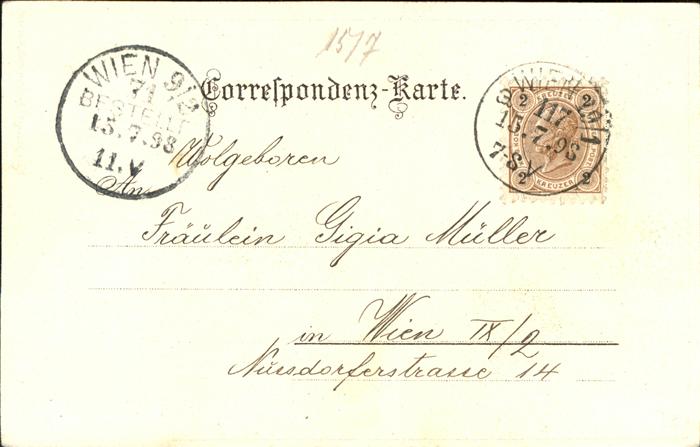 15/7
WIEN 9/2
71
BESTELLT
15.7.98
11.V
Correspondenz-Karte.
WIEN
117
15.7.98
2 KREUZER 2
2 KREUZER 2
Wolgeboren
An
Fräulein Gigia Müller
in Wien IX/2
Nussdorferstrasse 14